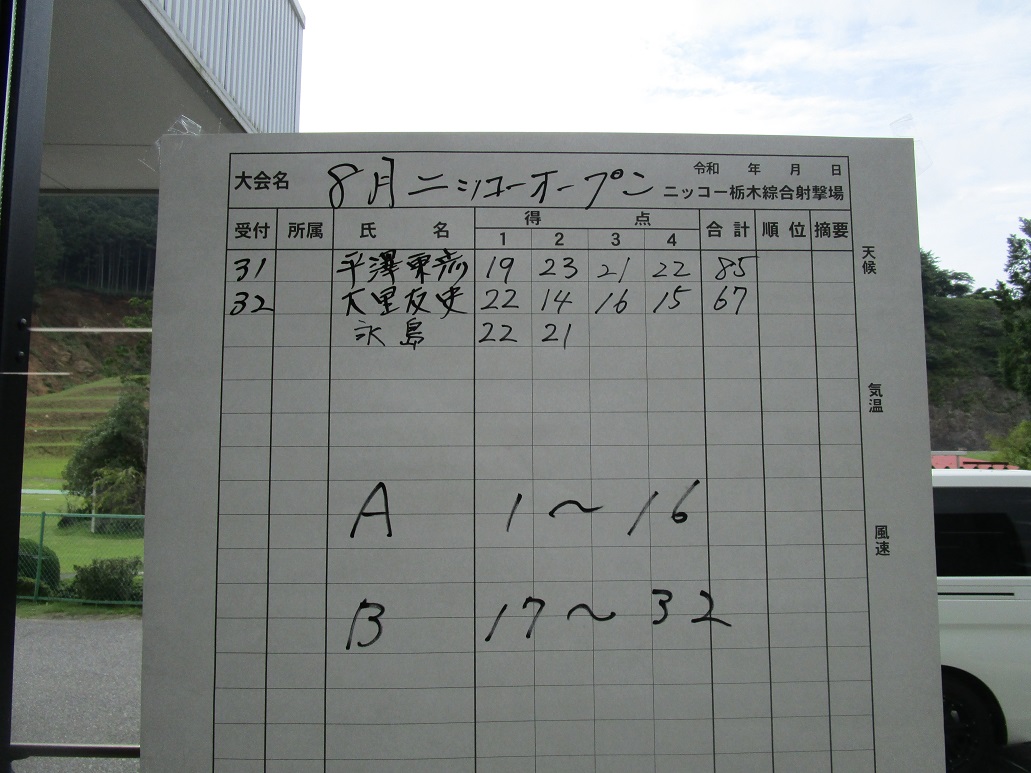 大会名 8月ニッコーオープン 令和 年 月 日
ニッコー栃木綜合射撃場
受付 所属 氏 名 得 点 合計 順位 摘要
1 2 3 4
31 平澤東彦 19 23 21 22 85
32 大里友史 22 14 16 15 67
永島 22 21
A 1～16
B 17～32
天候
気温
風速